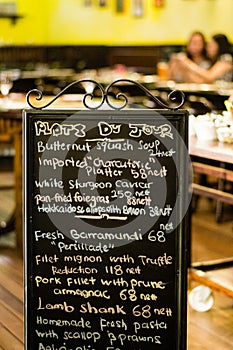 PLATS DU JOUR
Butternut squash Soup 2? nett
Imported "Charcuterie"
Platter 58 nett
White Sturgeon Caviar
250 nett
Pan-fried foiegras 88 nett
Hokkaido scallops with Bacon 38 nett
Fresh Barramundi 68 nett
"Persillade"
Filet mignon with Truffle
Reduction 118 nett
Pork fillet with prune
armagnac 68 nett
Lamb Shank 68 nett
Homemade Fresh pasta
with scallop & prawns